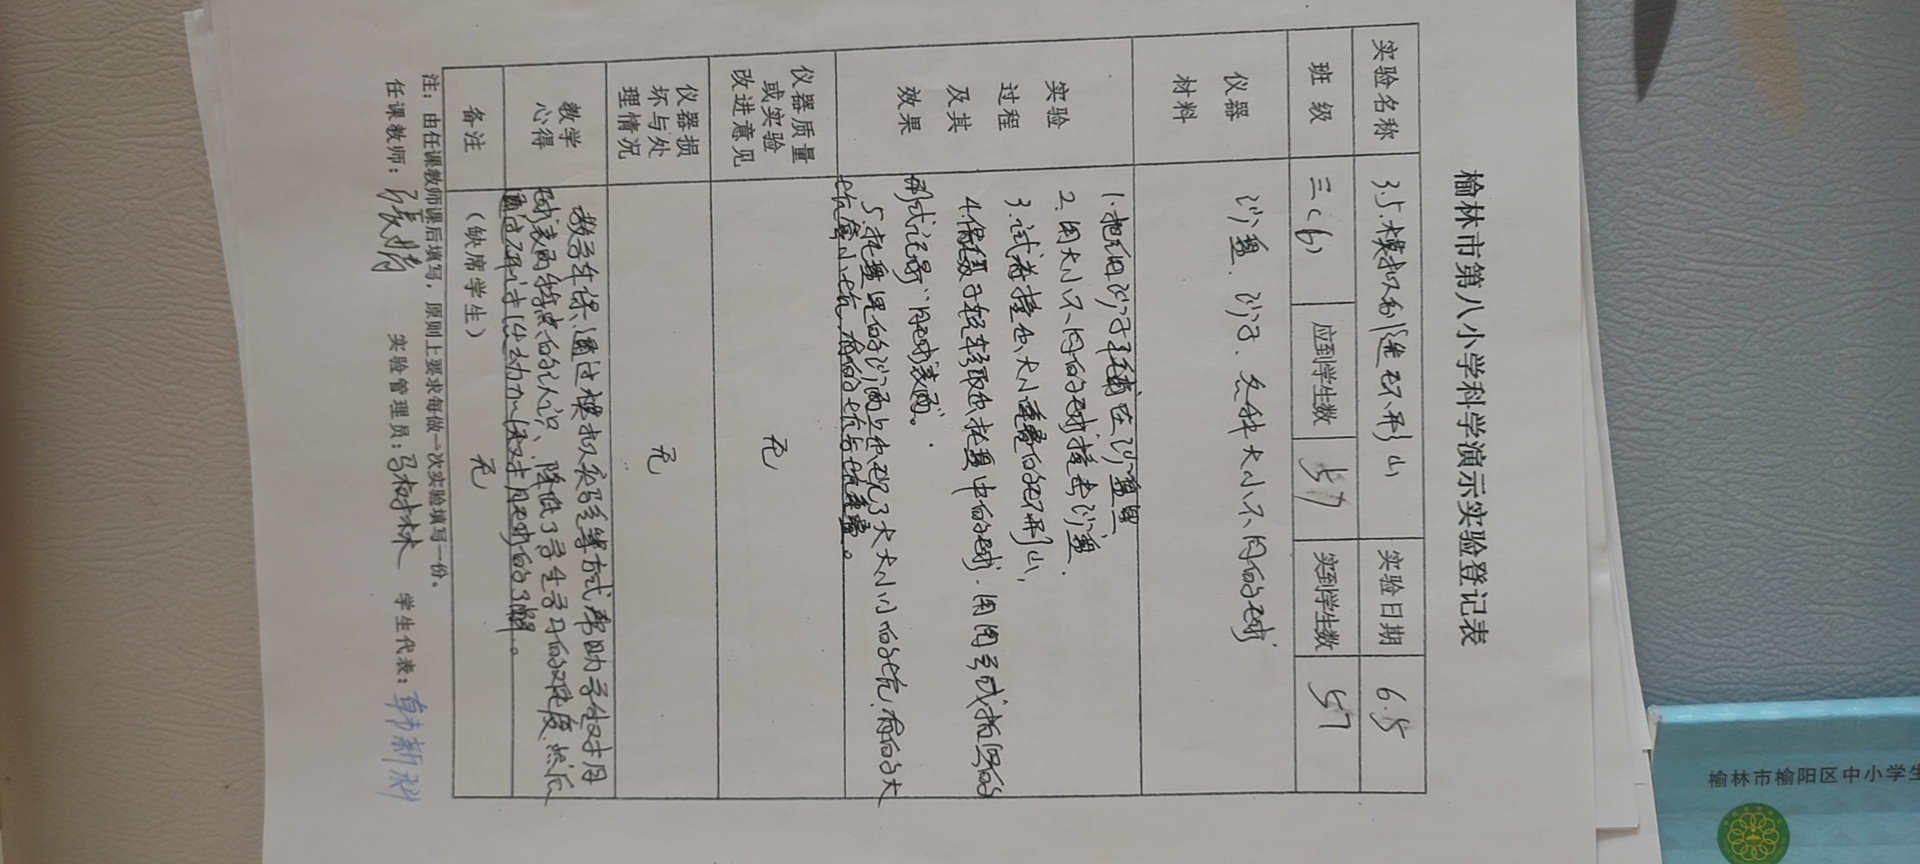 榆林市第八小学科学演示实验登记表
实验名称 3.5.模拟制造环形山 实验日期 6.5
班级 三(6) 应到学生数 57 实到学生数 57
仪器材料 沙盘、沙子、各种大小不同的球
实验过程及其效果
1.把细沙子平铺在沙盘里
2.用大小不同的球撞击沙盘.
3.试着撞出大小重叠的环形山,
4.借助镊子轻轻取出托盘中的球.用图画或拍照的
形式记录"月球表面".
5.托盘里的沙面上出现了大大小小的坑,有的大
坑套小坑,有的坑与坑重叠。
仪器质量或实验改进意见 无
仪器损坏与处理情况 无
教学心得
教学年课,通过模拟实验等方式帮助学生对月
球表面特点的认识、降低了学生学习的难度.然后
通过研讨活动加深对月球的了解。
备注 (缺席学生) 无
注:由任课教师课后填写,原则上要求每做一次实验填写一份。
任课教师: 张婧 实验管理员: 马树林 学生代表:
榆林市榆阳区中小学生